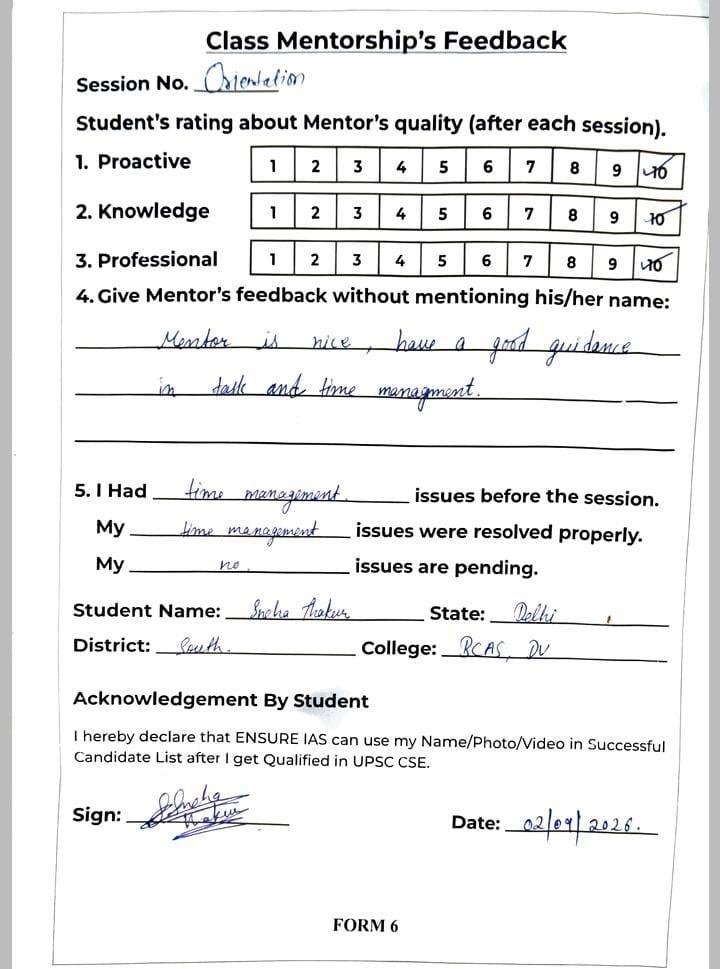 Class Mentorship's Feedback
Session No. Orientation
Student's rating about Mentor's quality (after each session).
1. Proactive 1 2 3 4 5 6 7 8 9 10
2. Knowledge 1 2 3 4 5 6 7 8 9 10
3. Professional 1 2 3 4 5 6 7 8 9 10
4. Give Mentor's feedback without mentioning his/her name:
Mentor is nice, have a good guidance
in task and time managment.
5. I Had time management. issues before the session.
My time management issues were resolved properly.
My no. issues are pending.
Student Name: Sneha Thakur State: Delhi
District: South. College: RCAS, DU
Acknowledgement By Student
I hereby declare that ENSURE IAS can use my Name/Photo/Video in Successful
Candidate List after I get Qualified in UPSC CSE.
Sign: Sneha
Thakur
Date: 02/09/2026.
FORM 6